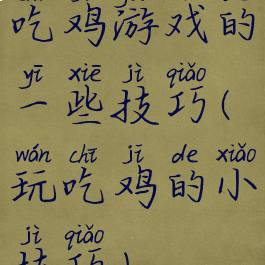 吃鸡游戏的
yī xiē jì qiǎo
一些技巧(
wán chī jī de xiǎo
玩吃鸡的小
jì qiǎo
技巧)